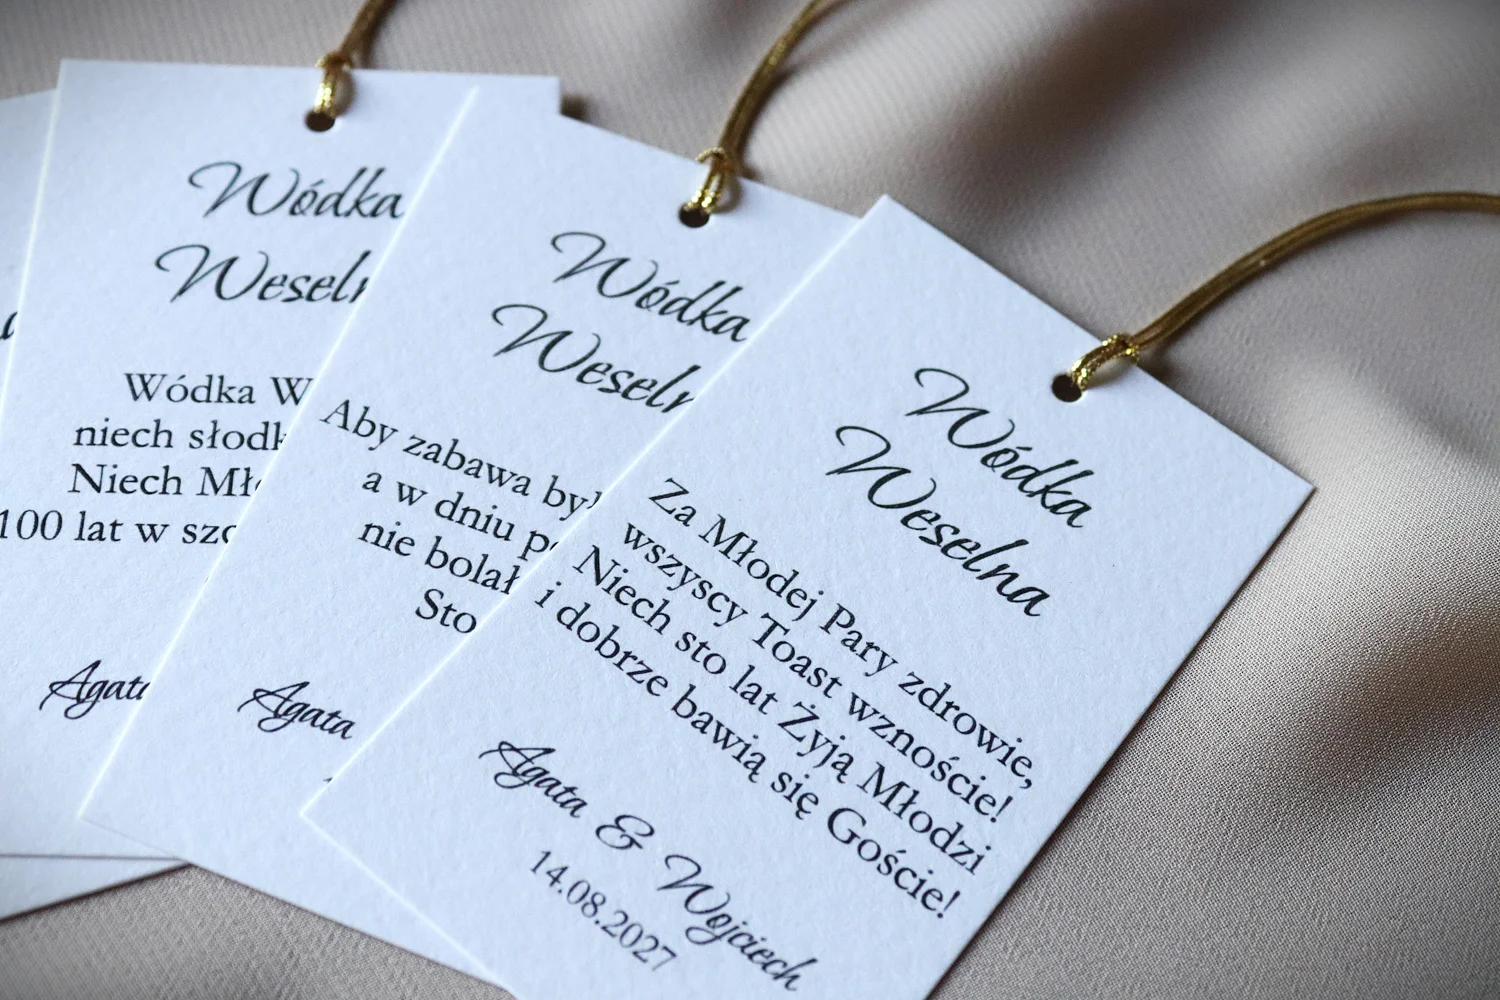 Wódka
Wódka W
niech słodk
Niech Mł
100 lat w szc
Agata
Wódka
Aby zabawa był
a w dniu p
nie bolał
Sto
Agata
Wódka
Weselna
Za Młodej Pary zdrowie,
wszyscy Toast wznoście!
Niech sto lat Żyją Młodzi
i dobrze bawią się Goście!
Agata & Wojciech
14.08.2027